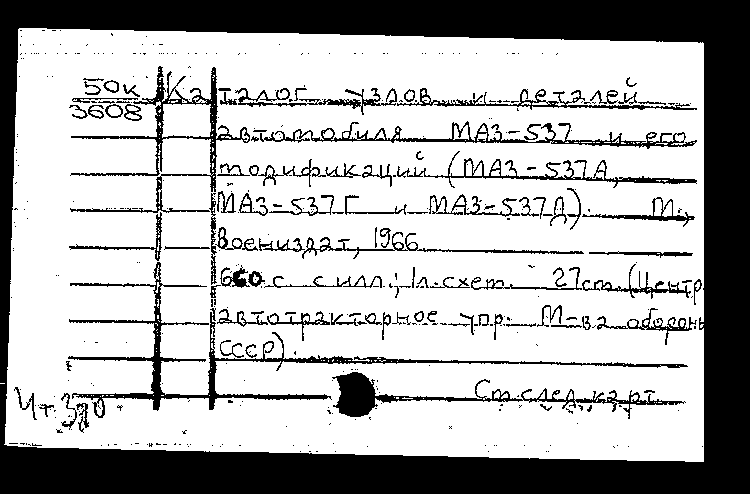 50к Каталог узлов и деталей
3608
автомобиля МАЗ-537 и его
модификаций (МАЗ-537А,
МАЗ-537Г и МАЗ-537Д). М.,
Воениздат, 1966.
с. с илл.; 1л. схем. 27см. (Центр.
автотракторное упр. М-ва обороны
СССР).
См. след. карт.
Чт.